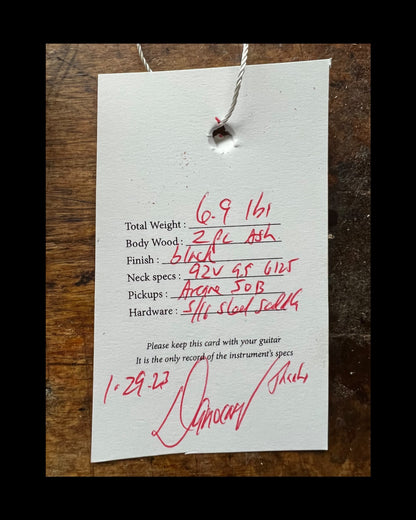 Total Weight : 6.9 lbs
Body Wood : 2 pc Ash
Finish : black
Neck specs : 92V 9.5 6125
Pickups : Arcane 50B
Hardware : steel
Please keep this card with your guitar
It is the only record of the instrument's specs
1-29-23 Thanks